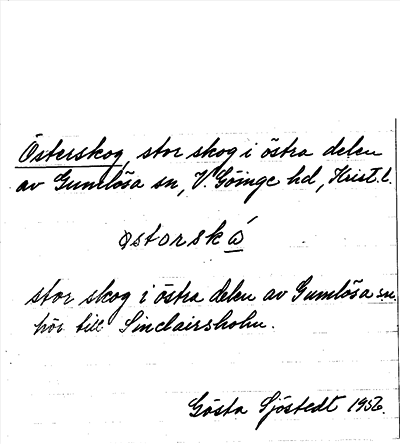 Österskog, stor skog i östra delen
av Gumlösa sn, V. Göinge hd, Krist. l.
østorskó̲
stor skog i östra delen av Gumlösa sn.
hör till Sinclairsholm.
Gösta Sjöstedt 1956.